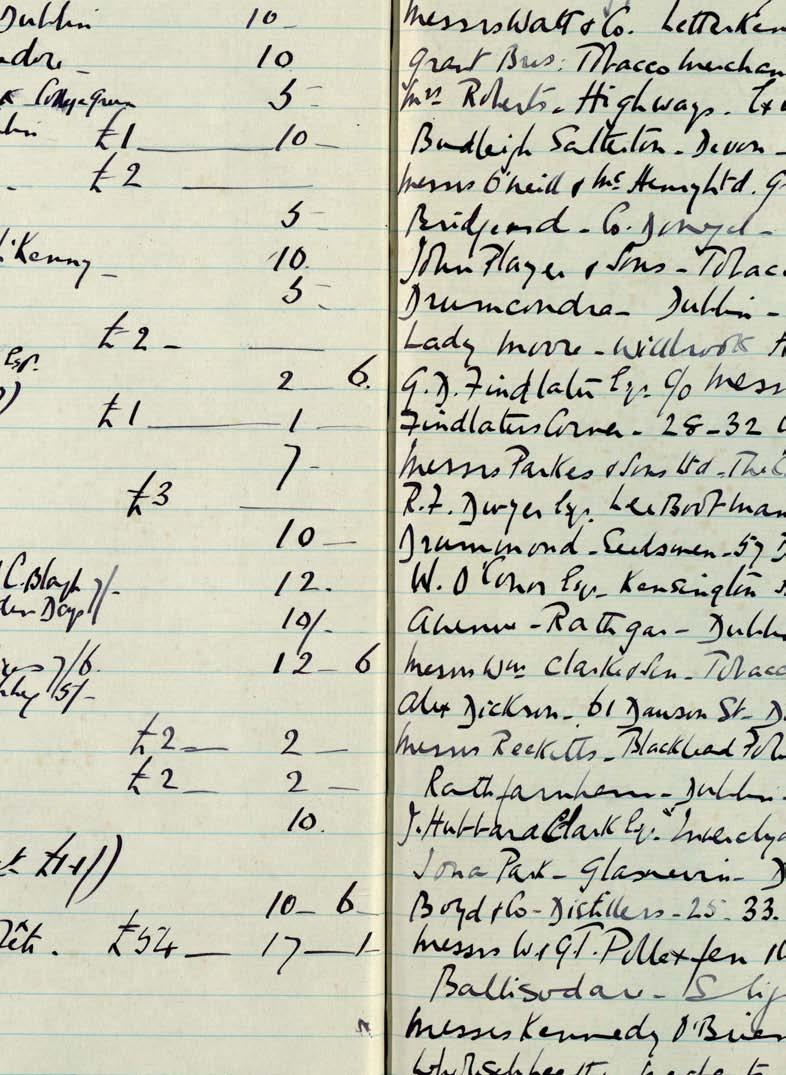 Dublin 10 -
10
Green 5 -
£1 10 -
£2
5 -
Kenny - 10.
5 -
£2 -
Esq. 2 - 6.
£1 1 -
7 -
£3
10 -
C. Blagh 12.
10/-
7/6. 12 - 6
5/-
£2 - 2 -
£2 2 -
10.
10 - 6
£54 - 17 - 1
Messrs Watt & Co. Letterken
Grant Bros: Tobacco Merchan
Mrs Roberts. Highways. Ex
Budleigh Salterton - Devon -
Messrs O'Neill & McHenry Ltd. G
Bridgend - Co. Donegal -
John Player & Sons - Tobac
Drumcondra - Dublin -
Lady Moore - Willbrook H
G.D. Findlater Esq. c/o Mess
Findlaters Corner - 28-32
Messrs Parkes & Sons Ltd - The C
R.F. Dwyer Esq. Lee Boot Man
Drummond - Seedsmen - 57 D
W. O'Conor Esq - Kensington
Avenue - Rathgar - Dubli
Messrs Wm Clarke & Son - Tobacc
Alex Dickson - 61 Dawson St - D
Messrs Recketts - Blacklead
Rathfarnham - Dublin.
J. Hubbard Clark Esq.
Iona Park - Glasnevin - D
Boyd & Co - Distillers - 25 - 33.
Messrs W. & G.T. Pollexfen
Ballisodare - Slig
Messrs Kennedy O'Brien